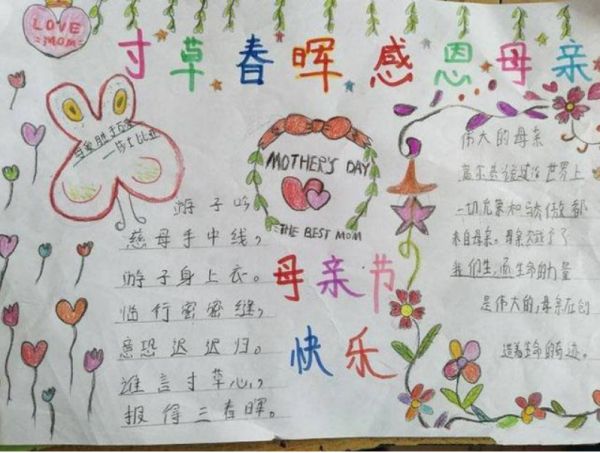 LOVE
=MOM=
寸草春晖 感恩母亲
莎士比亚
MOTHER'S DAY
THE BEST MOM
游子吟
慈母手中线，
游子身上衣。
临行密密缝，
意恐迟迟归。
谁言寸草心，
报得三春晖。
母亲节
快乐
伟大的母亲
高尔基 世界上
一切光荣和骄傲都
来自母亲。母亲 了
我们生，而生命的力量
是伟大的，母亲在创
造着生命的奇迹。